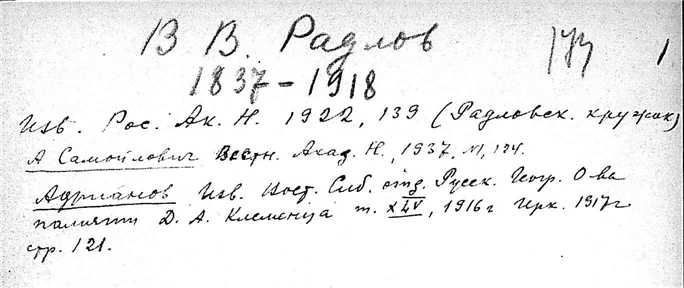 В В. Радлов
1837-1918
Изв. Рос. Ак. Н. 1922, 139 (Радловск. кружок)
А Самойлович Вестн. Акад. Н., 1937, №1, 124.
Адрианов Изв. Вост. Сиб. отд. Русск. Геогр. О-ва
памяти Д. А. Клеменца т. XLV, 1916г Ирк. 1917г
стр. 121.